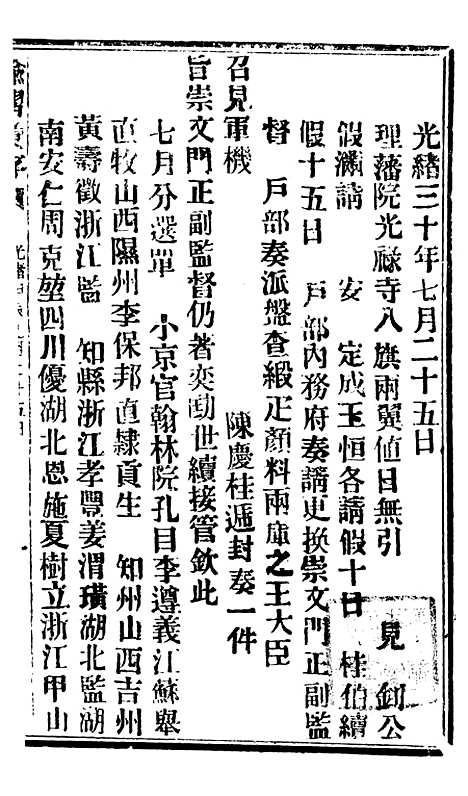 光緒三十年七月二十五日
理藩院光祿寺八旗兩翼值日無引　見　釗公
假滿請　安　定成玉恒各請假十日　桂伯續
假十五日　戶部內務府奏請更換崇文門正副監
督　戶部奏派盤查緞疋顏料兩庫之王大臣
召見軍機　陳慶桂遞封奏一件
旨崇文門正副監督仍著奕劻世續接管欽此
七月分選單　小京官翰林院孔目李遵義江蘇舉
直牧山西隰州李保邦直隸貢生　知州山西吉州
黃壽徵浙江監　知縣浙江孝豐姜渭璜湖北監湖
南安仁周克堃四川優湖北恩施夏樹立浙江甲山
光緒
二十五日